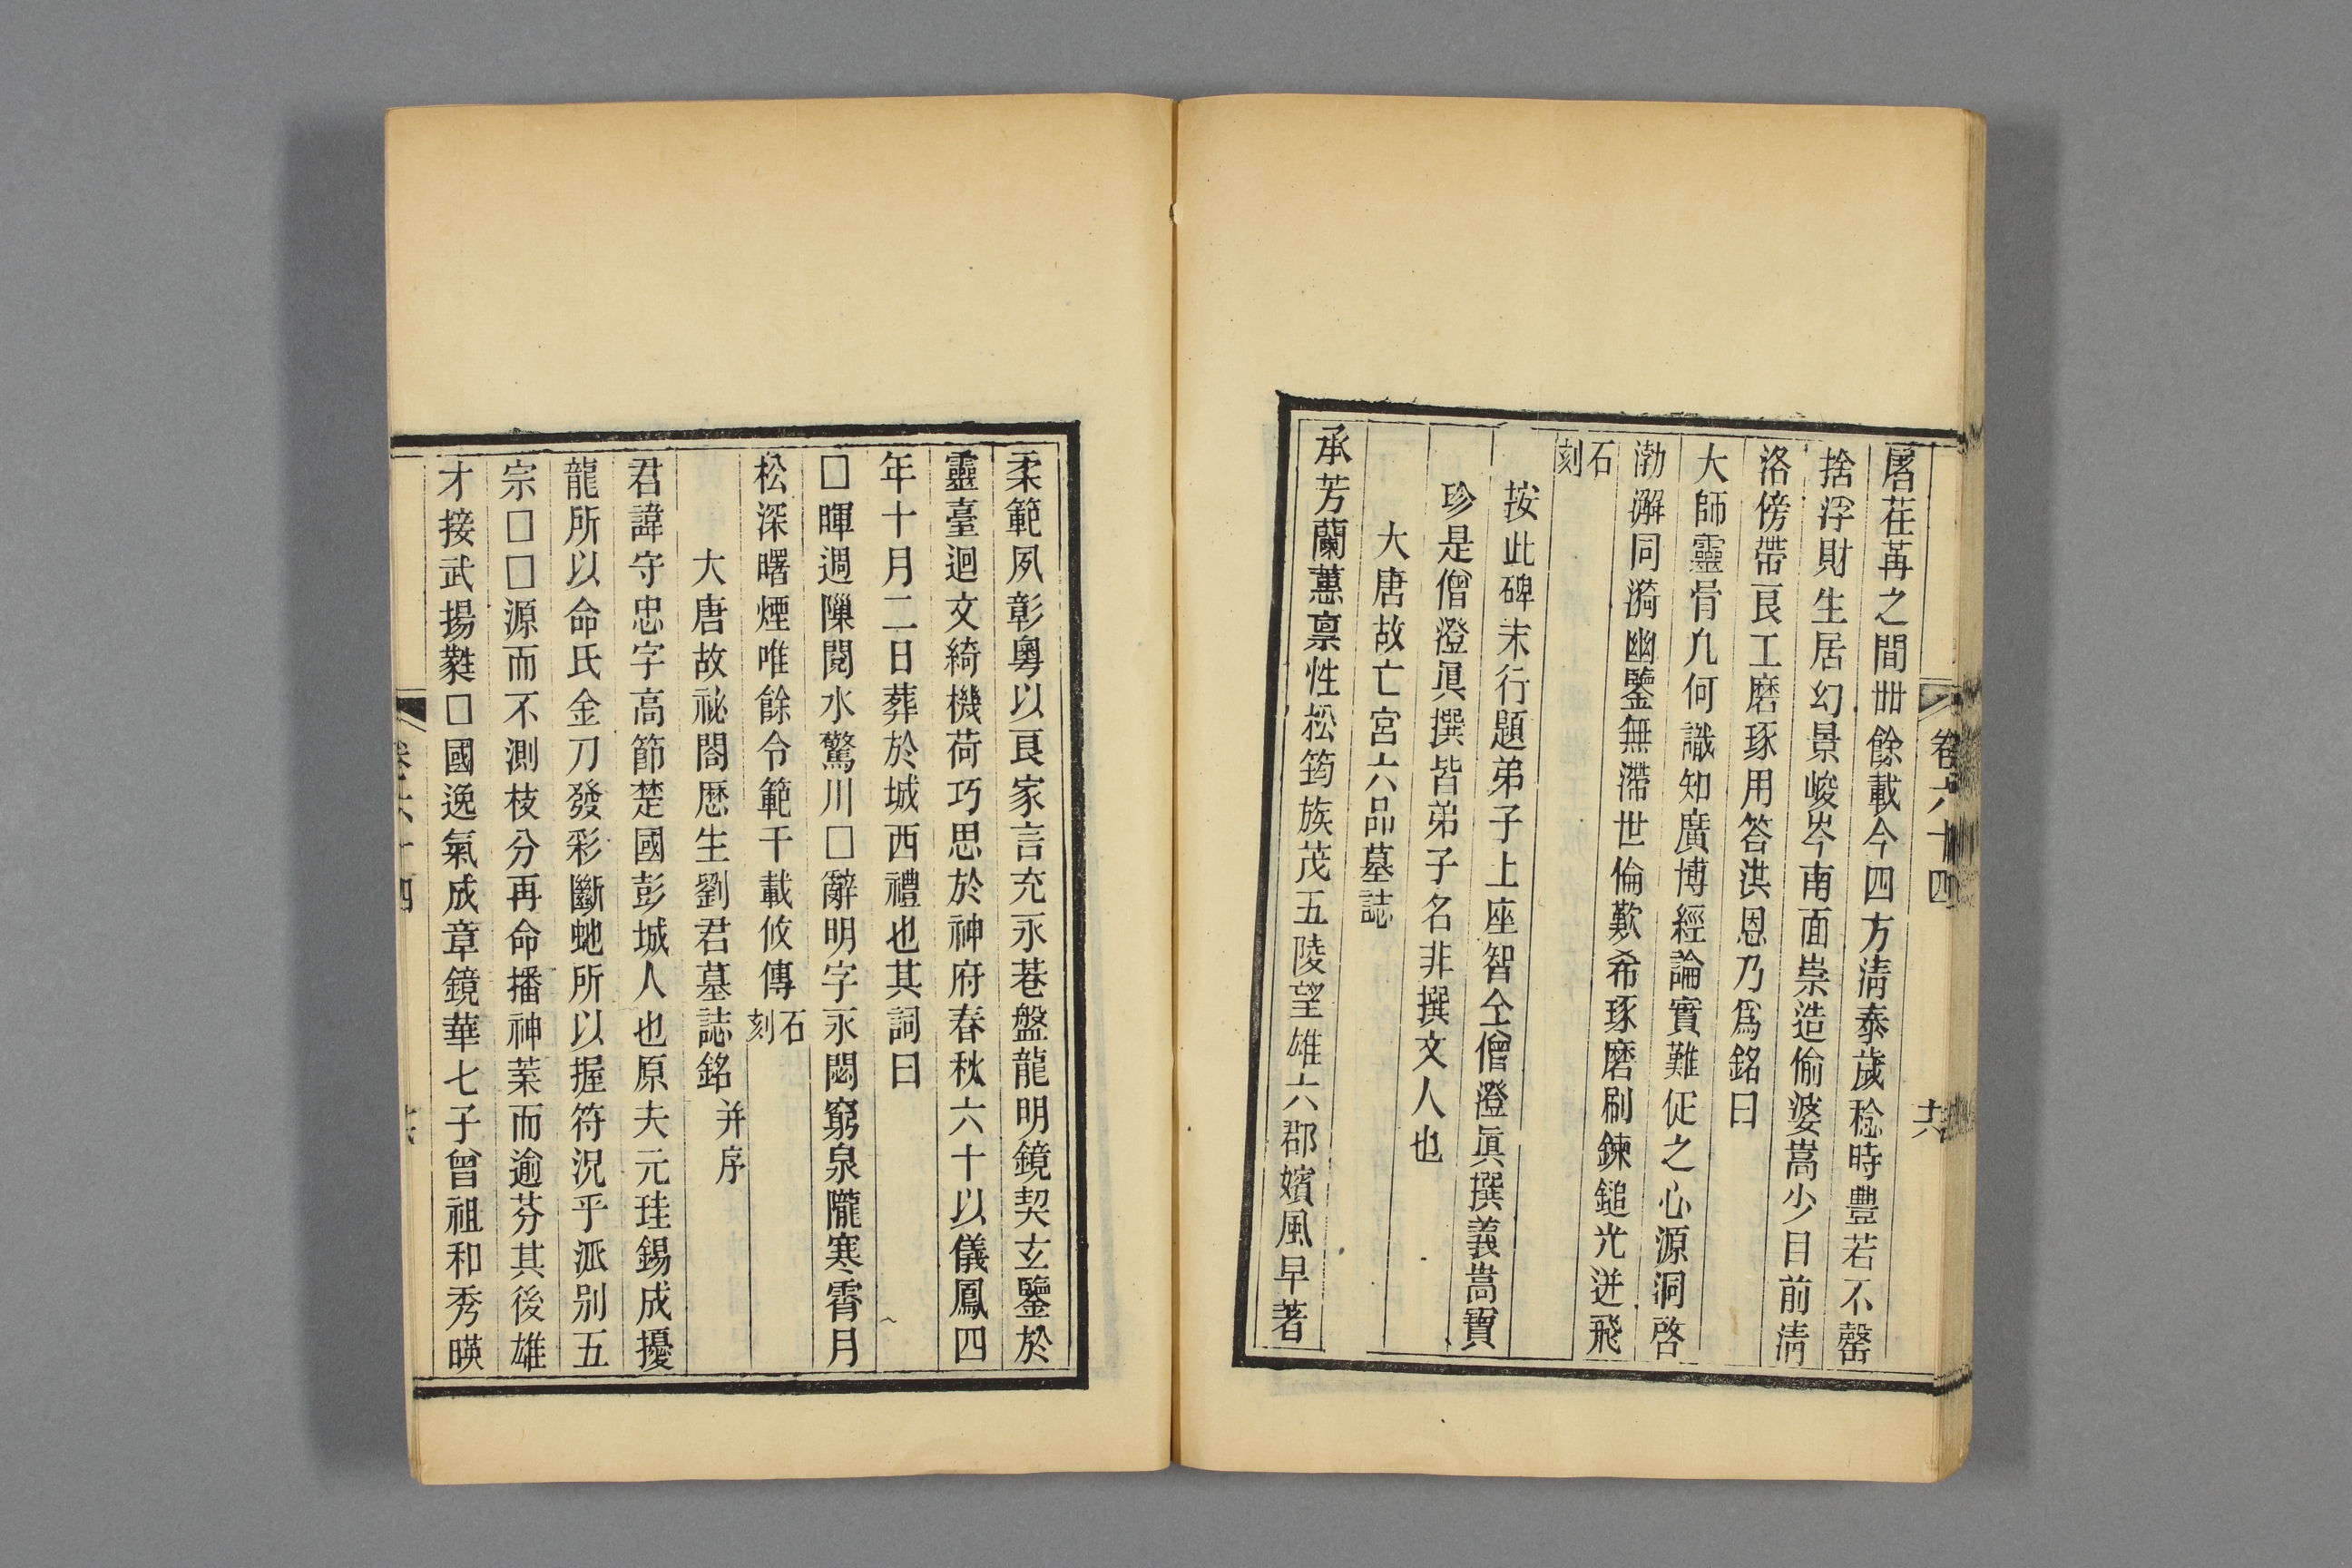 卷六十四
十六
屠茬苒之間卌餘載今四方清泰歲稔時豐若不罄
捨浮財生居幻景峻岑南面崇造偷婆嵩少目前淸
洛傍帶良工磨琢用答洪恩乃爲銘曰
大師靈骨凢何識知廣博經論實難促之心源洞啓
渤澥同漪幽鑒無滯世倫歎希琢磨刷鍊鎚光迸飛
石刻
按此碑末行題弟子上座智仝僧澄眞撰義嵩寶
珍是僧澄眞撰皆弟子名非撰文人也
大唐故亡宮六品墓誌
承芳蘭蕙禀性松筠族茂五陵望雄六郡嬪風早著
柔範夙彰粵以良家言充永巷盤龍明鏡契玄鑒於
靈臺迴文綺機荷巧思於神府春秋六十以儀鳳四
年十月二日葬於城西禮也其詞曰
□暉週隟閱水驚川□辭明字永閟窮泉隴寒霄月
松深曙煙唯餘令範千載攸傳石刻
大唐故祕閣厯生劉君墓誌銘并序
君諱守忠字高節楚國彭城人也原夫元珪錫成擾
龍所以命氏金刀發彩斷虵所以握符況乎派别五
宗□□源而不測枝分再命播神葉而逾芬其後雄
才接武揚蕤□國逸氣成章鏡華七子曾祖和秀暎